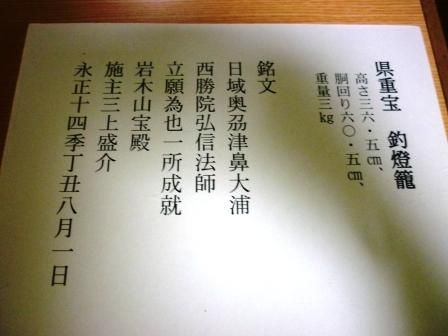 県重宝　釣燈籠
高さ三六・五㎝、
胴回り六〇・五㎝、
重量三㎏
銘文
日域奥刕津鼻大浦
西勝院弘信法師
立願為也一所成就
岩木山宝殿
施主三上盛介
永正十四季丁丑八月一日